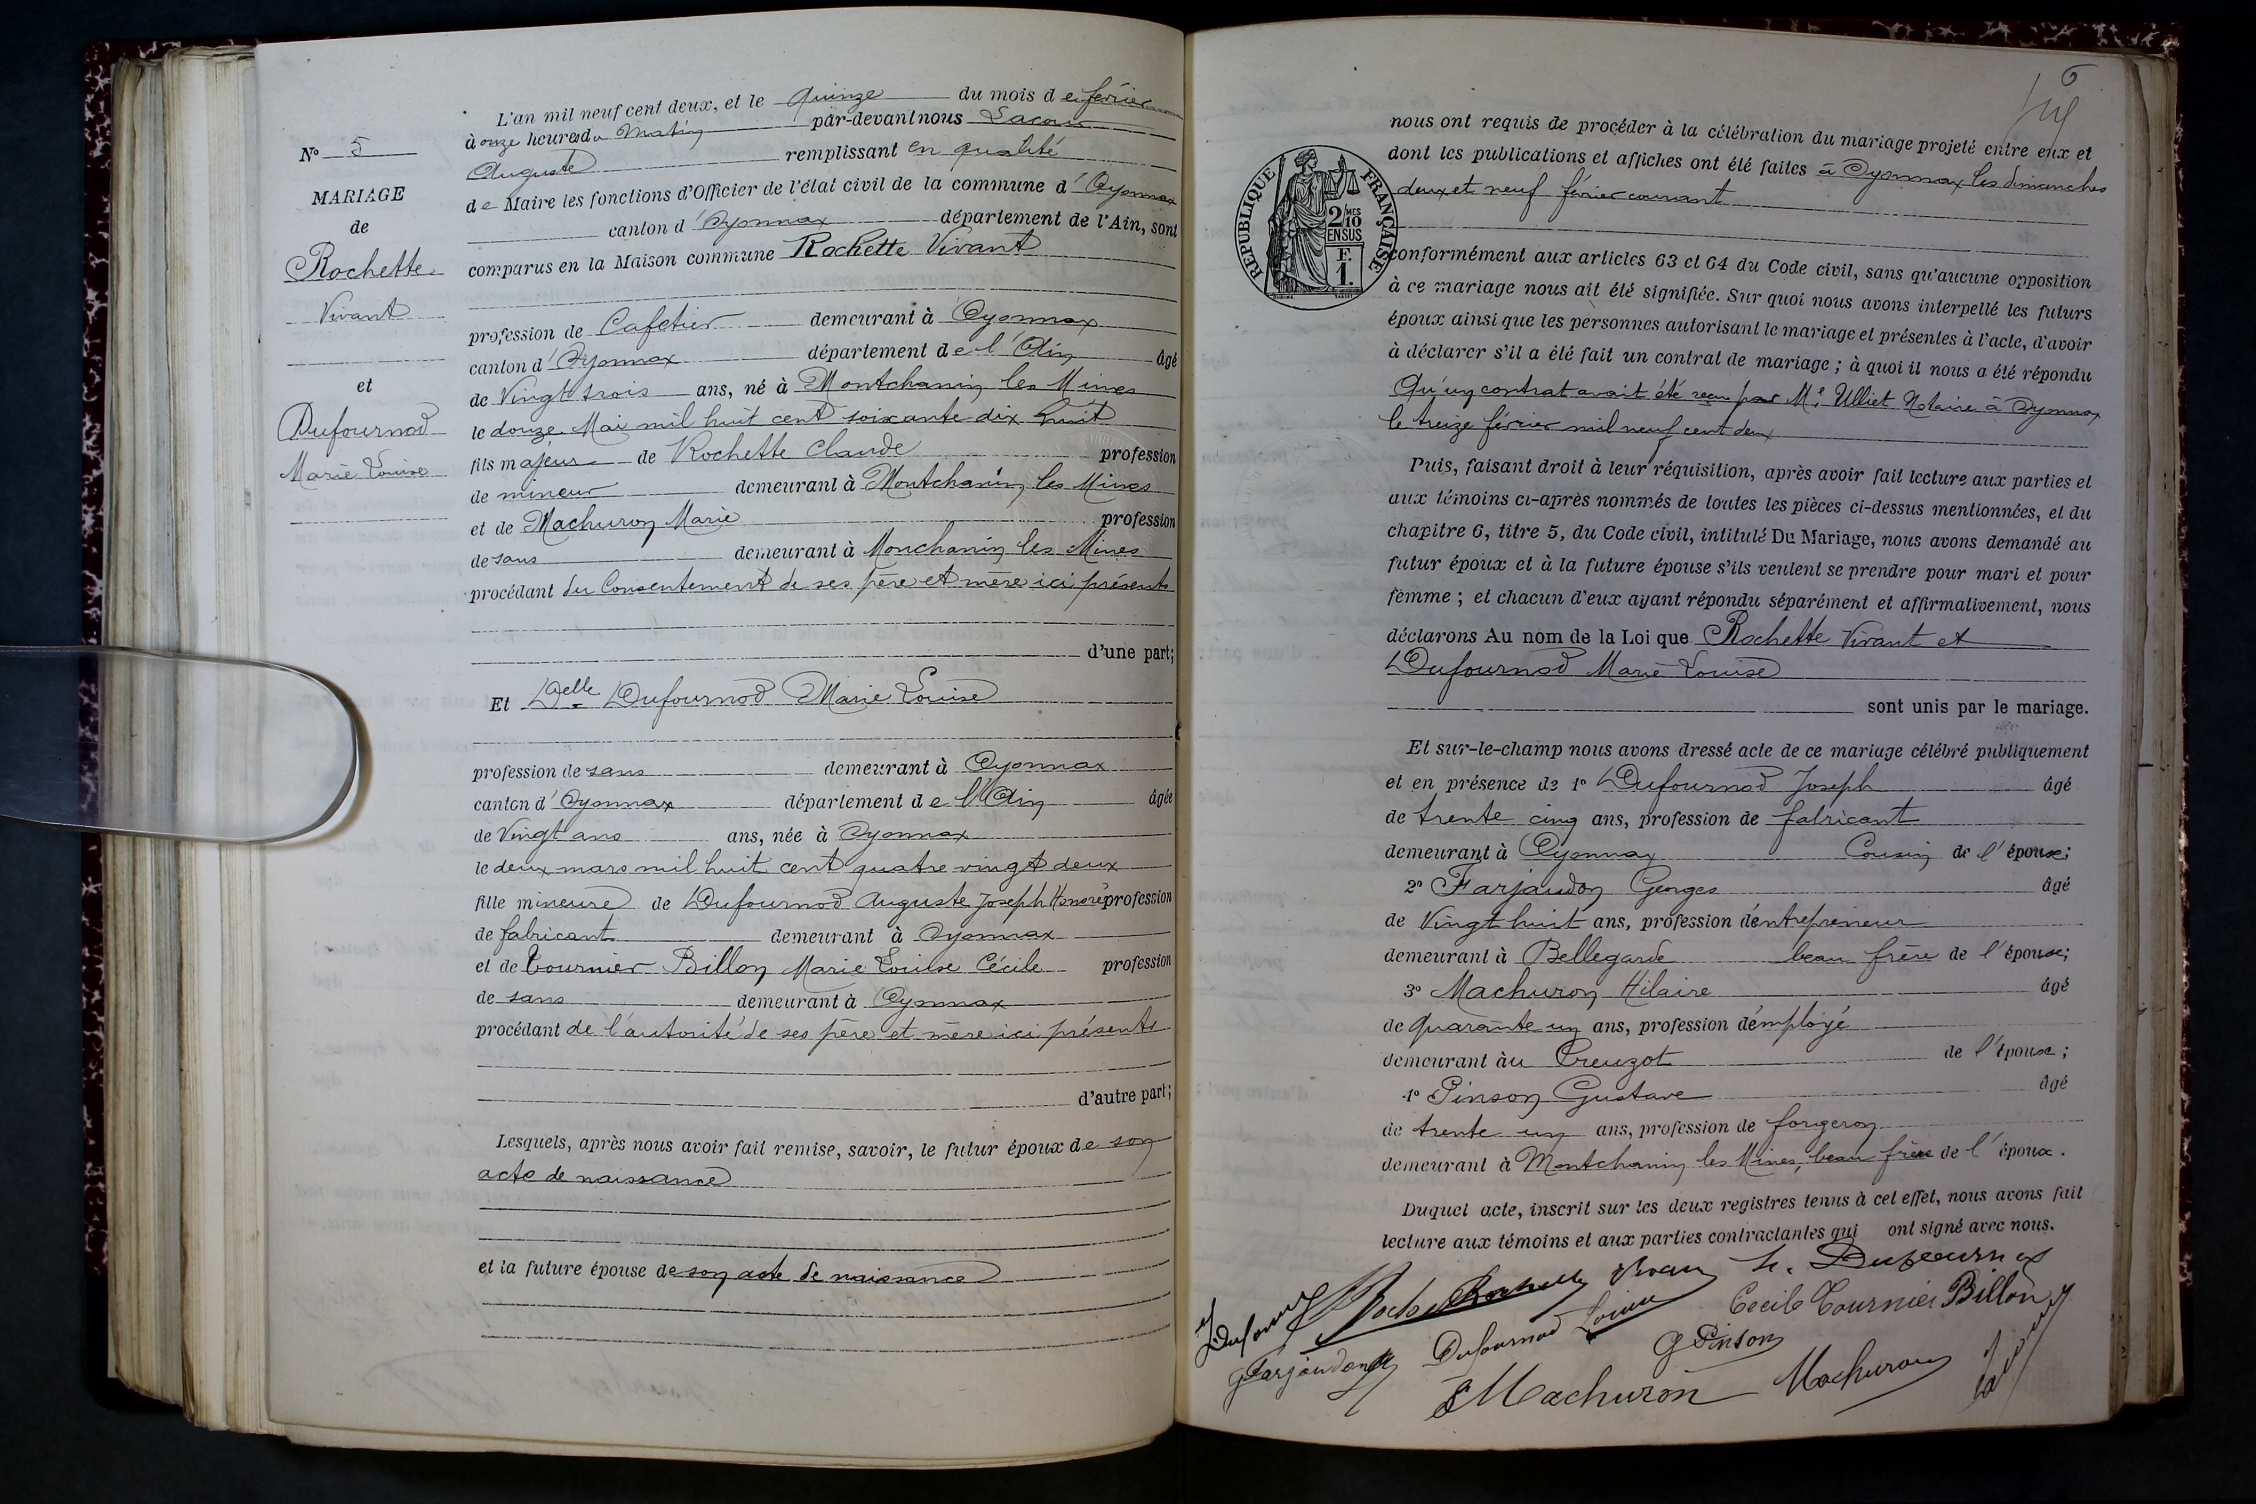 L'an mil neuf cent deux, et le quinze du mois de février
à onze heures du matin par-devant nous Lacour
Auguste remplissant en qualité
de Maire les fonctions d'Officier de l'état civil de la commune d'Oyonnax
canton d'Oyonnax département de l'Ain, sont
comparus en la Maison commune Rochette Vivant
profession de Cafetier demeurant à Oyonnax
canton d'Oyonnax département de l'Ain âgé
de Vingt trois ans, né à Montchanin les Mines
le douze Mai mil huit cent soixante dix huit
fils majeur de Rochette Claude profession
de mineur demeurant à Montchanin les Mines
et de Machuron Marie profession
de sans demeurant à Monchanin les Mines
procédant du Consentement de ses père et mère ici présents
d'une part;
Et Delle Dufournod Marie Louise
profession de sans demeurant à Oyonnax
canton d'Oyonnax département de l'Ain âgée
de Vingt ans ans, née à Oyonnax
le deux mars mil huit cent quatre vingt deux
fille mineure de Dufournod Auguste Joseph Honoré profession
de fabricant demeurant à Oyonnax
et de Tournier Billon Marie Louise Cécile profession
de sans demeurant à Oyonnax
procédant de l'autorité de ses père et mère ici présents
d'autre part;
Lesquels, après nous avoir fait remise, savoir, le futur époux de son
acte de naissance
et la future épouse de son acte de naissance
No 5
MARIAGE
de
Rochette
Vivant
et
Dufournod
Marie Louise
6
nous ont requis de procéder à la célébration du mariage projeté entre eux et
dont les publications et affiches ont été faites à Oyonnax les dimanches
deux et neuf février courant
conformément aux articles 63 et 64 du Code civil, sans qu'aucune opposition
à ce mariage nous ait été signifiée. Sur quoi nous avons interpellé les futurs
époux ainsi que les personnes autorisant le mariage et présentes à l'acte, d'avoir
à déclarer s'il a été fait un contrat de mariage ; à quoi il nous a été répondu
Qu'un contrat avait été reçu par Me Ulliet Notaire à Oyonnax
le treize février mil neuf cent deux
Puis, faisant droit à leur réquisition, après avoir fait lecture aux parties et
aux témoins ci-après nommés de toutes les pièces ci-dessus mentionnées, et du
chapitre 6, titre 5, du Code civil, intitulé Du Mariage, nous avons demandé au
futur époux et à la future épouse s'ils veulent se prendre pour mari et pour
femme ; et chacun d'eux ayant répondu séparément et affirmativement, nous
déclarons Au nom de la Loi que Rochette Vivant et
Dufournod Marie Louise
sont unis par le mariage.
Et sur-le-champ nous avons dressé acte de ce mariage célébré publiquement
et en présence de 1o Dufournod Joseph âgé
de trente cinq ans, profession de fabricant
demeurant à Oyonnax Cousin de l'épouse;
2o Farjaudon Georges âgé
de Vingt huit ans, profession d'entrepreneur
demeurant à Bellegarde beau frère de l'épouse;
3o Machuron Hilaire âgé
de quarante un ans, profession d'employé
demeurant àu Creuzot de l'épouse;
4o Pinson Gustave âgé
de trente un ans, profession de forgeron
demeurant à Montchanin les Mines, beau frère de l'époux.
Duquel acte, inscrit sur les deux registres tenus à cet effet, nous avons fait
lecture aux témoins et aux parties contractantes qui ont signé avec nous.
REPUBLIQUE FRANÇAISE
2/10 MES
EN SUS
F.
1.
Cecile Tournier Billon
Dufournod Louise
G Pinson
G Farjaudon
Machuron
Machuron